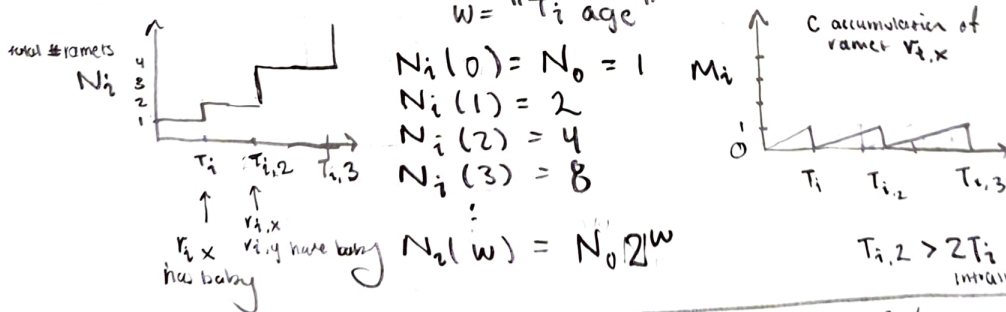 total # ramets
Nᵢ
4
3
2
1
Tᵢ
Tᵢ,2
Tᵢ,3
rᵢ x
has baby
rᵢ,x
rᵢ,y have baby
W = "Tᵢ age"
Nᵢ(0) = N₀ = 1
Nᵢ(1) = 2
Nᵢ(2) = 4
Nᵢ(3) = 8
⋮
Nᵢ(w) = N₀2^w
C accumulation of
ramet rᵢ,x
Mᵢ
1
0
Tᵢ
Tᵢ,2
Tᵢ,3
Tᵢ,2 > 2Tᵢ